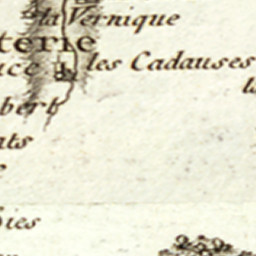 la Vernique
terie
ace
les Cadauses
bert
ats
ies